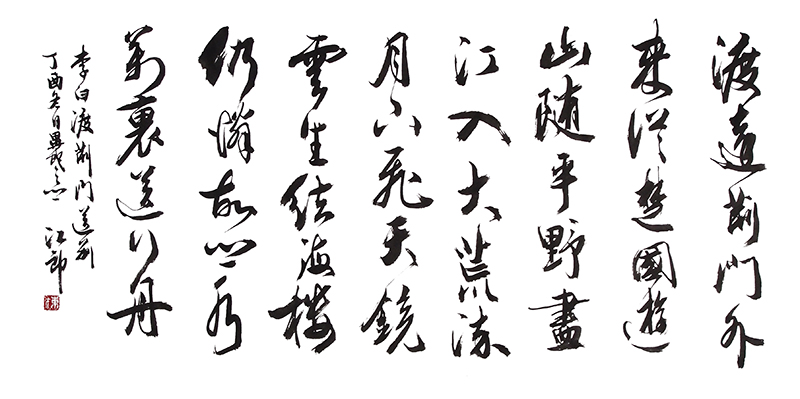 渡遠荊門外
來從楚國遊
山随平野盡
江入大荒流
月下飛天鏡
雲生結海樓
仍憐故鄉水
萬裏送行舟
李白渡荊門送別
丁酉冬日 江郎